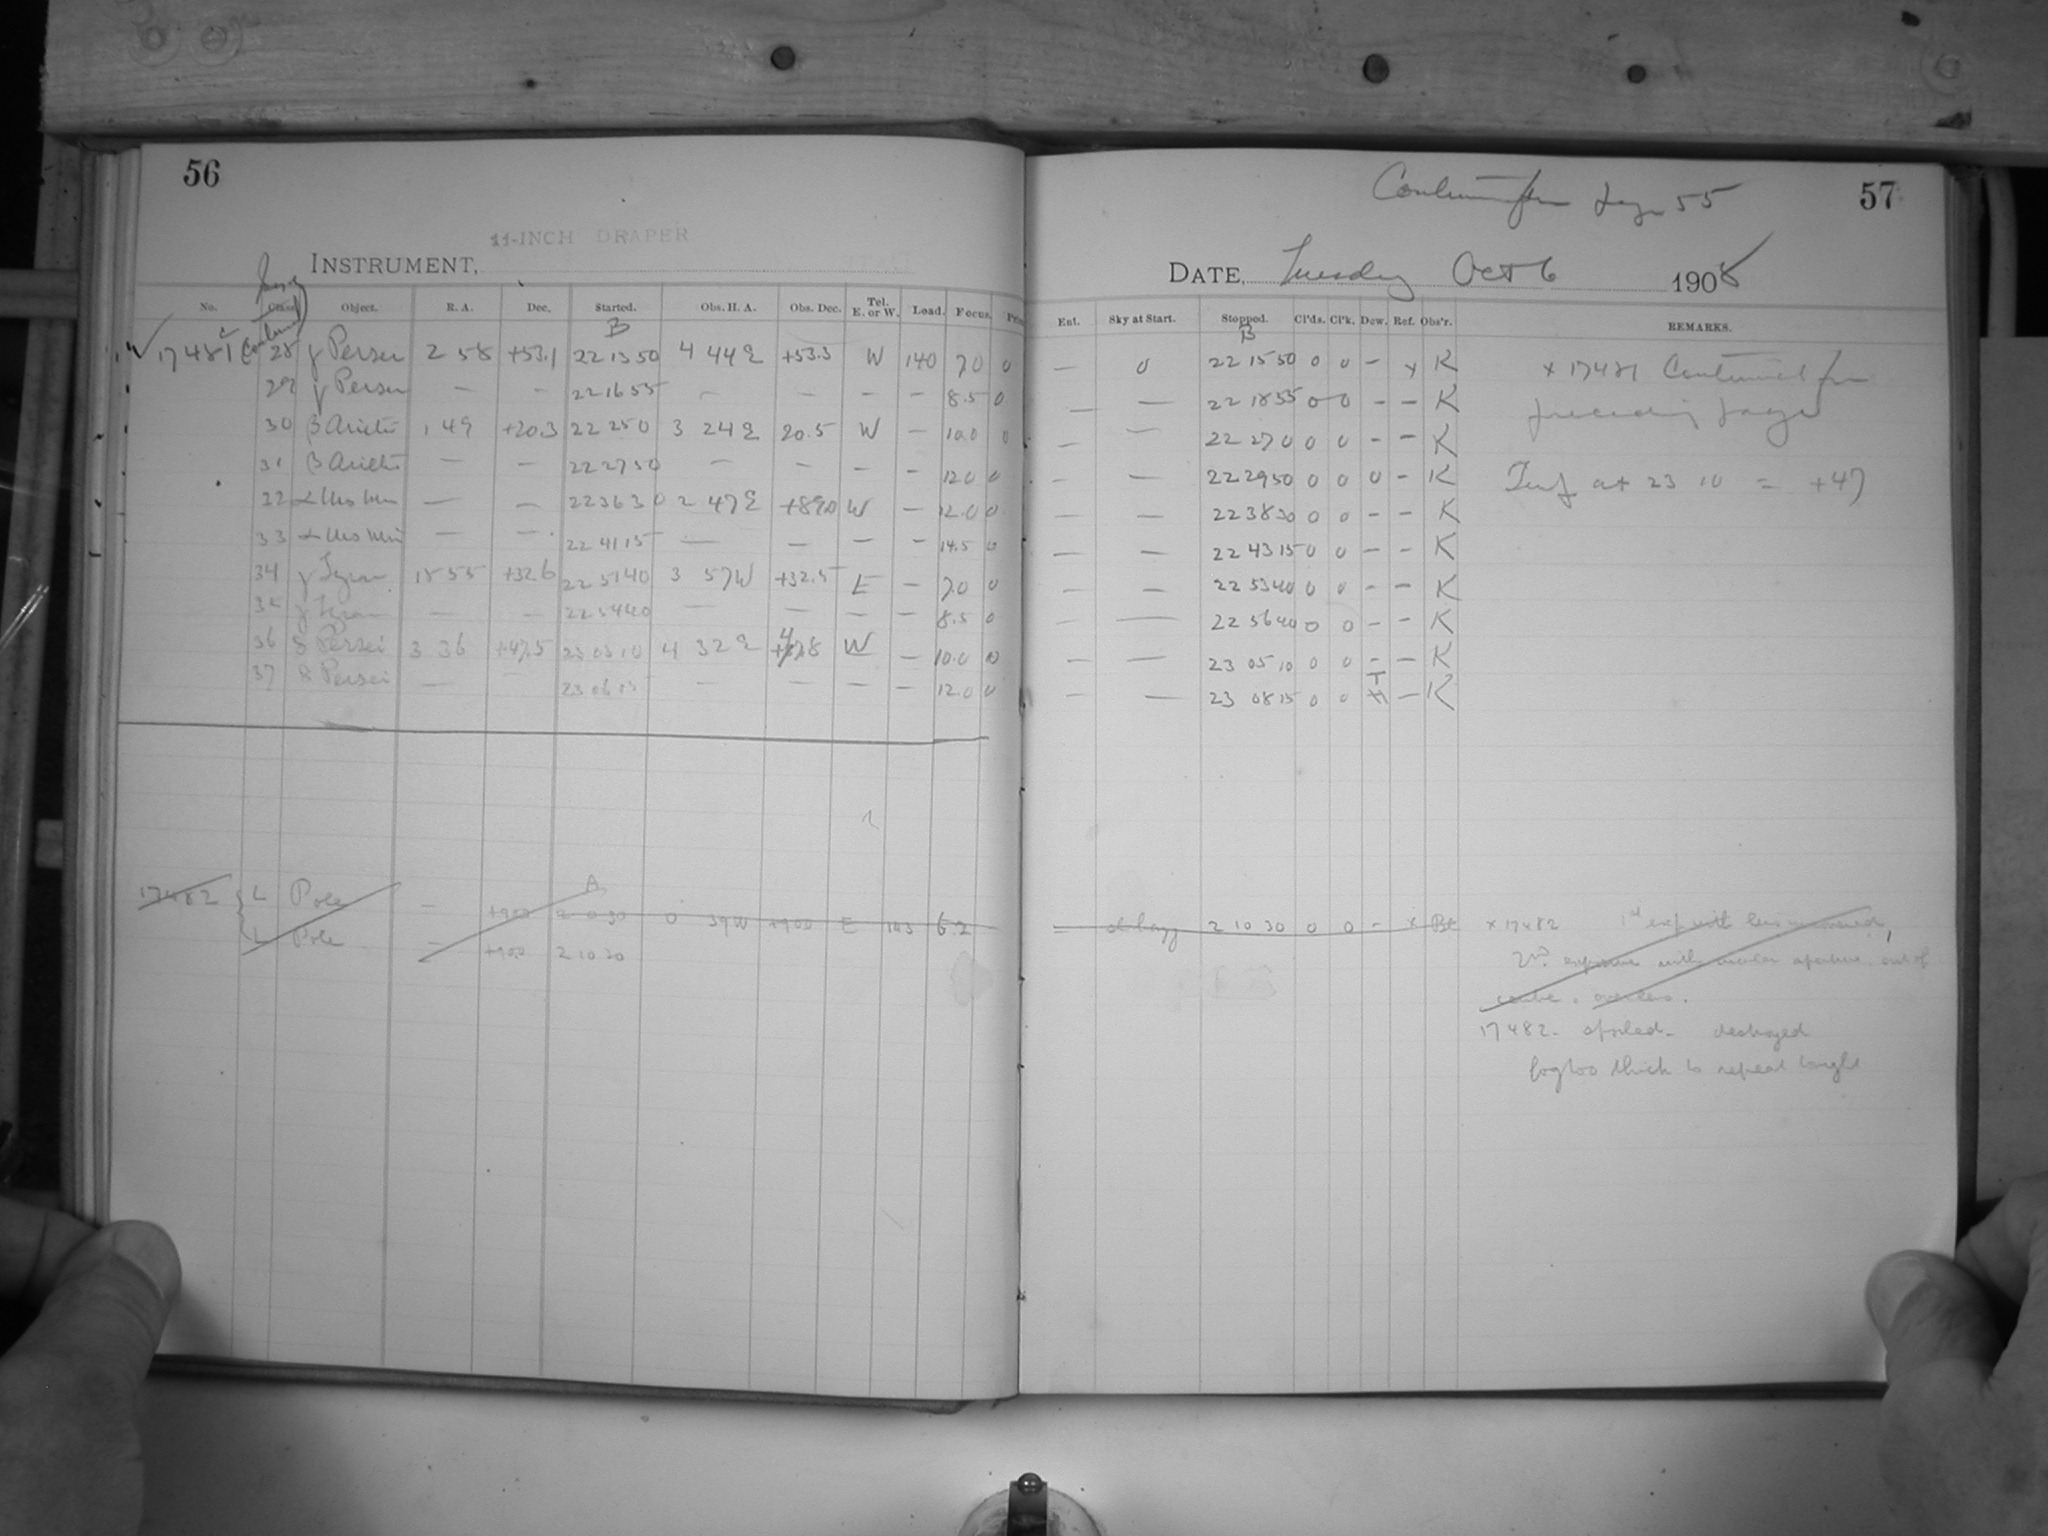 56
11-INCH DRAPER
INSTRUMENT,
No. Class Object. R. A. Dec. Started. Obs. H. A. Obs. Dec. Tel. E. or W. Load. Focus.
B
17481 28 γ Persei 2 58 +53.1 22 13 50 4 44 E +53.3 W 140 7.0 0
29 γ Persei — — 22 16 55 — — — — 8.5 0
30 β Arietis 1 49 +20.3 22 25 0 3 24 E 20.5 W — 10.0 0
31 β Arietis — — 22 27 50 — — — — 12.0 0
32 α Urs Min — — 22 36 30 2 47 E +89.0 W — 12.0 0
33 α Urs Min — — 22 41 15 — — — — 14.5 0
34 γ Lyrae 18 55 +32.6 22 51 40 3 57 W +32.5 E — 7.0 0
35 γ Lyrae — — 22 54 40 — — — — 8.5 0
36 δ Persei 3 36 +47.5 23 03 10 4 32 E W — 10.0 0
37 δ Persei — — 23 06 15 — — — — 12.0 0
A
17482 L Pole — +90.0 2 0 30 0 39 W +90.0 E 143 6.2
L Pole — +90.0 2 10 30
57
Continued from page 55
DATE, Tuesday Oct 6 1908
Ent. Sky at Start. Stopped. Cl'ds. Cl'k. Dew. Ref. Obs'r. REMARKS.
B
— 0 22 15 50 0 0 — x K x 17481 Continued from
— — 22 18 55 0 0 — — K preceding page
— — 22 27 0 0 0 — — K
— — 22 29 50 0 0 0 — K Temp at 23 10 = +47
— — 22 38 30 0 0 — — K
— — 22 43 15 0 0 — — K
— — 22 53 40 0 0 — — K
— — 22 56 40 0 0 — — K
— — 23 05 10 0 0 — — K
— — 23 08 15 0 0 T — K
2 10 30 0 0 — x x 17482 1st exp with lens
2nd exposure with aperture out of
centre
17482 spoiled destroyed
fog too thick to repeat tonight